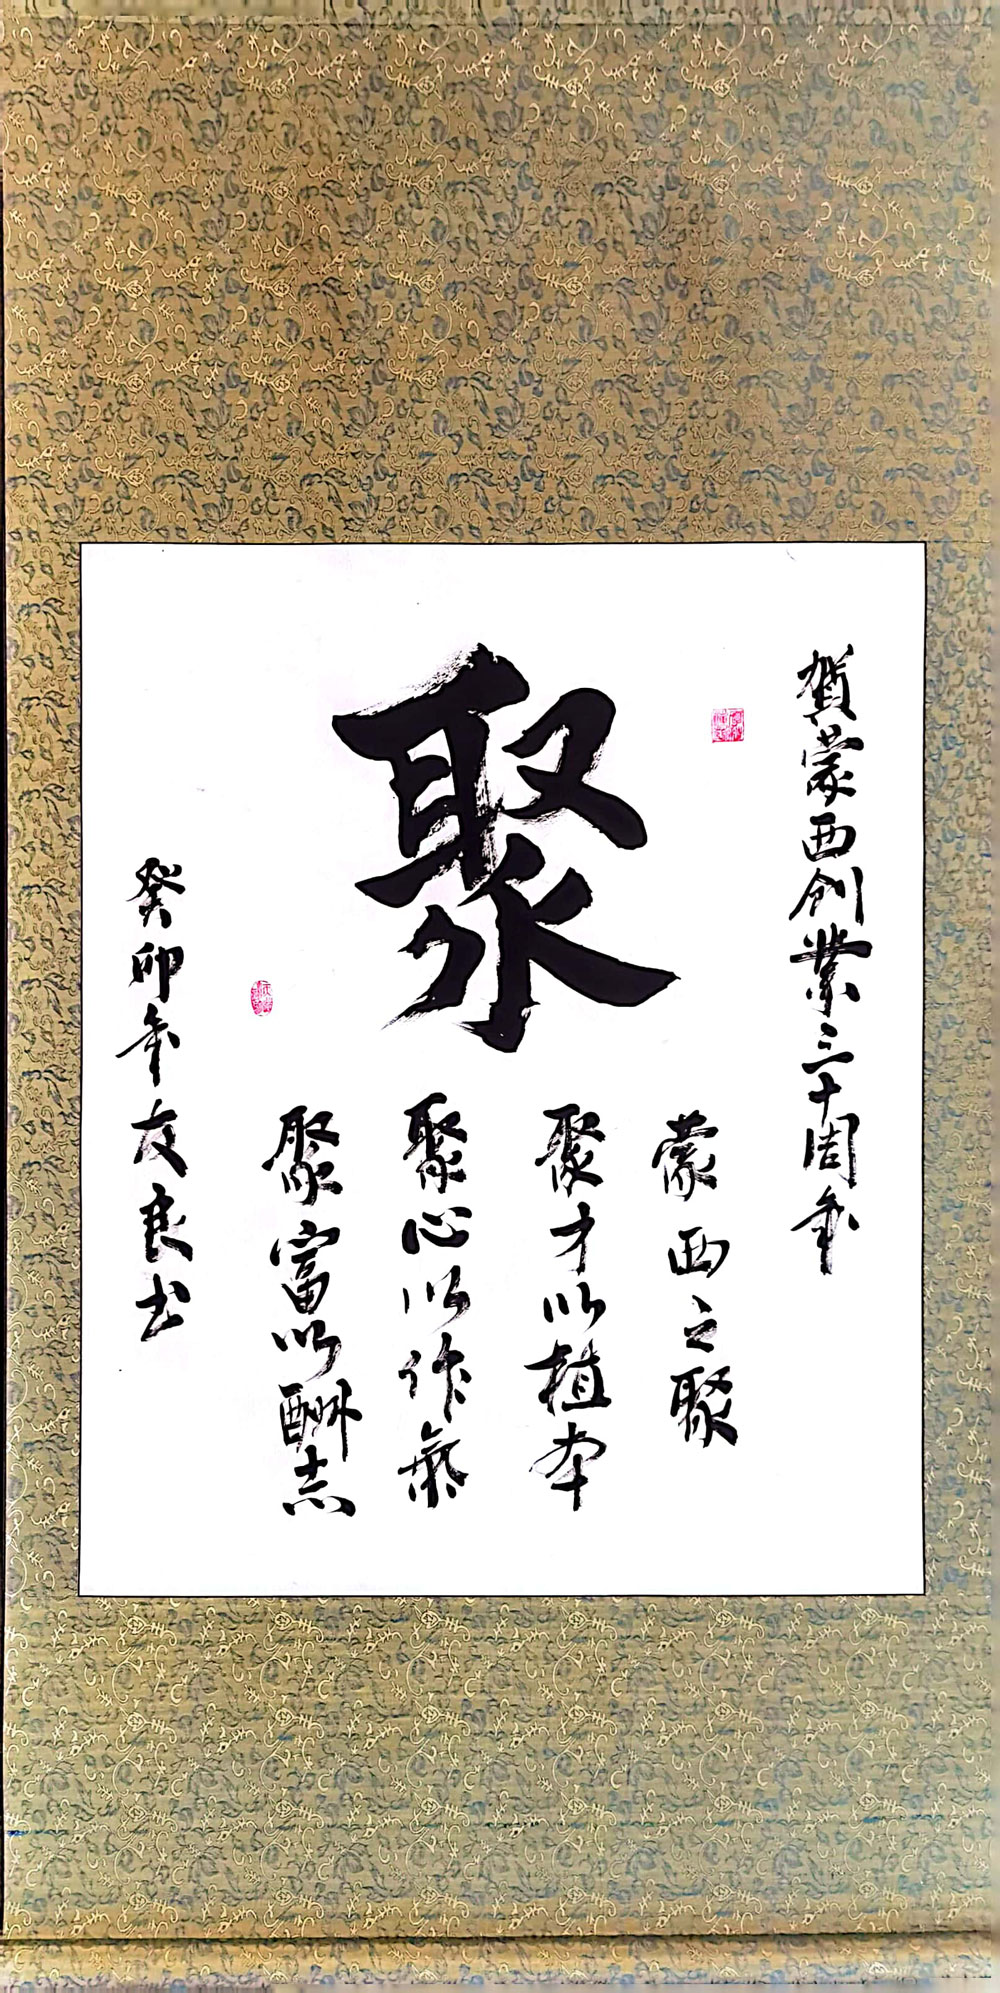 賀蒙西创業三十周年
聚
蒙西之聚
聚才以植本
聚心以作氣
聚富以酬志
癸卯年友良书